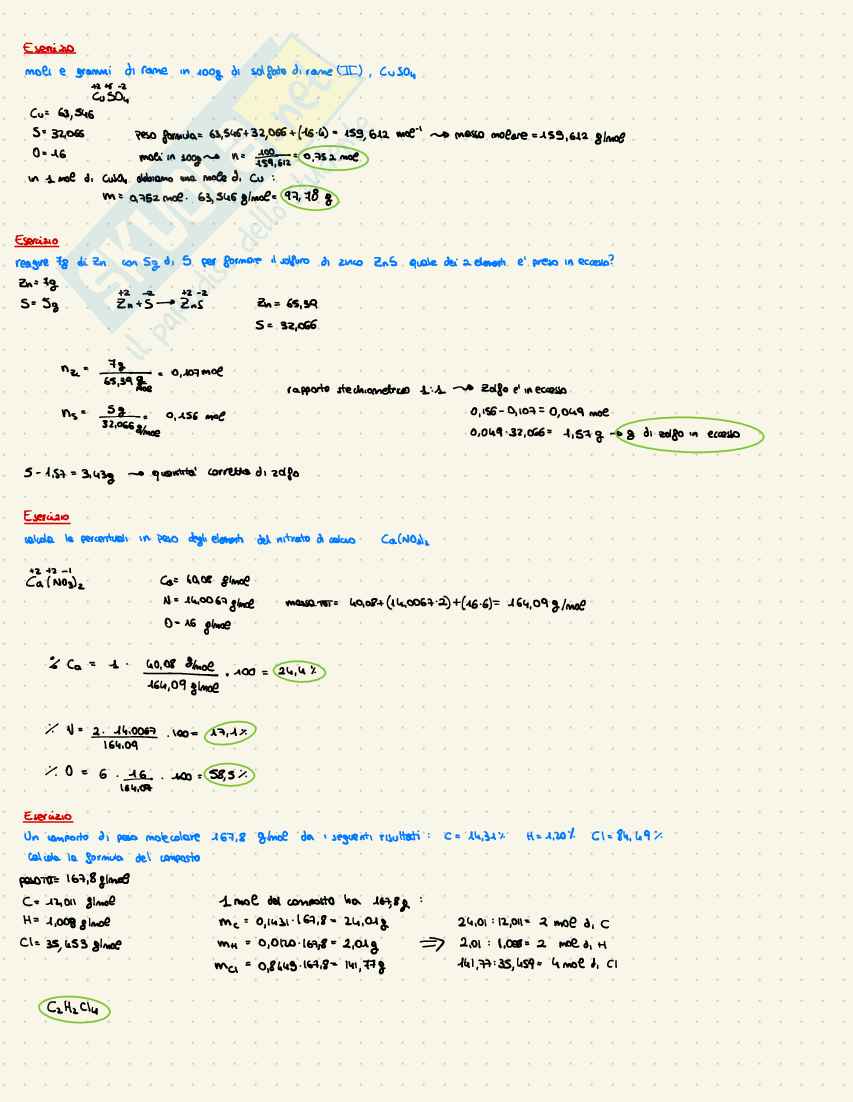 Esercizio
moli e grammi di rame in 100g di solfato di rame (II), CuSO4
+2 +6 -2
CuSO4
Cu= 63,546
S= 32,066 peso formula= 63,546+32,066+(16·4) = 159,612 mol⁻¹ → massa molare = 159,612 g/mol
O= 16 moli in 100g → n= 100/159,612 = 0,752 mol
in 1 mol di CuSO4 abbiamo una mole di Cu :
m= 0,752 mol · 63,546 g/mol= 97,78 g
Esercizio
reagire 7g di Zn con 5g di S per formare il solfuro di zinco ZnS quale dei 2 elementi e' preso in eccesso?
Zn= 7g
+2 -2 +2 -2
S= 5g Zn+S → ZnS Zn= 65,39
S= 32,066
nZn = 7g / 65,39 g/mol = 0,107 mol
rapporto stechiometrico 1:1 → zolfo e' in eccesso
nS = 5g / 32,066 g/mol = 0,156 mol
0,156-0,107= 0,049 mol
0,049·32,066= 1,57 g → g di zolfo in eccesso
5-1,57 = 3,43g → quantita' corretta di zolfo
Esercizio
calcola le percentuali in peso degli elementi del nitrato di calcio Ca(NO3)2
+2 +2 -1
Ca(NO3)2 Ca= 40,08 g/mol
N= 14,0067 g/mol massa TOT= 40,08+(14,0067·2)+(16·6)= 164,09 g/mol
O= 16 g/mol
% Ca = 1 · 40,08 g/mol / 164,09 g/mol · 100 = 24,4 %
% N = 2· 14,0067 / 164,09 · 100= 17,1%
% O = 6 · 16 / 164,09 · 100 = 58,5%
Esercizio
Un composto di peso molecolare 167,8 g/mol da i seguenti risultati : C= 14,31% H= 1,20% Cl= 84,49%
calcola la formula del composto
peso TOT= 167,8 g/mol
C= 12,011 g/mol 1 mol del composto ha 167,8 g :
H= 1,008 g/mol mC = 0,1431·167,8= 24,01g 24,01 : 12,011= 2 mol di C
Cl= 35,453 g/mol mH = 0,0120·167,8= 2,01g ⇒ 2,01 : 1,008= 2 mol di H
mCl = 0,8449·167,8= 141,77g 141,77:35,459= 4 mol di Cl
C2H2Cl4
SKUOLA.net
il paradiso dello studente